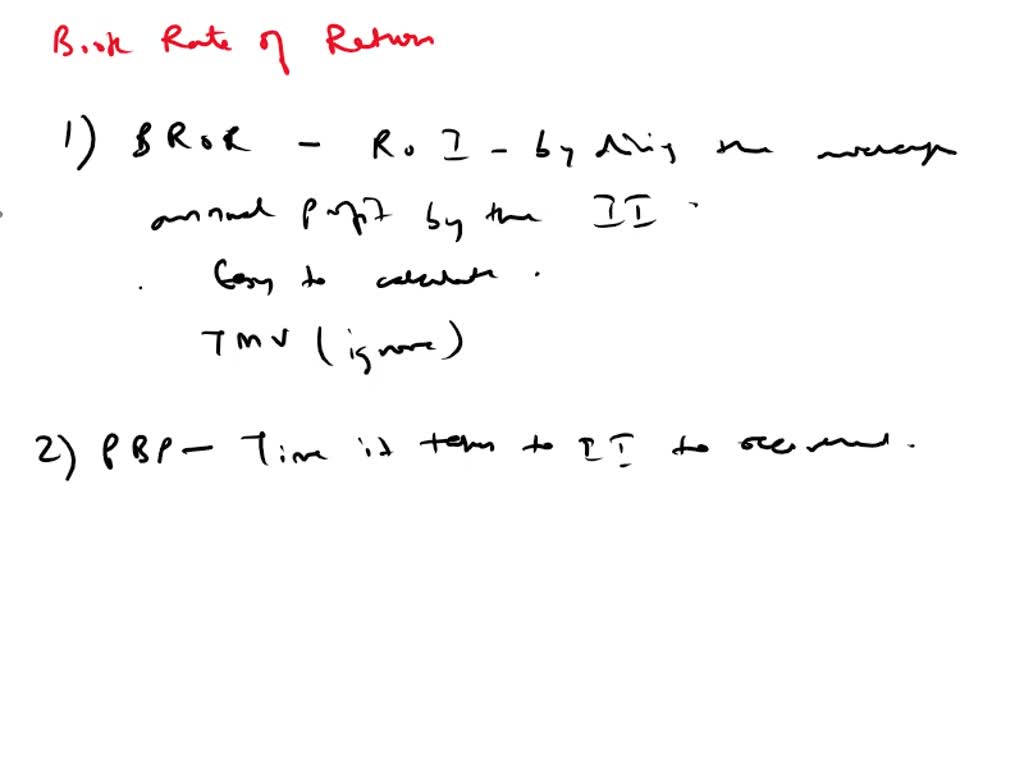 Book Rate of Return
1) BRoR - RoI - by the average
annual profit by the II.
. Easy to calculate.
TMV (ignore)
2) PBP - Time it takes to II to